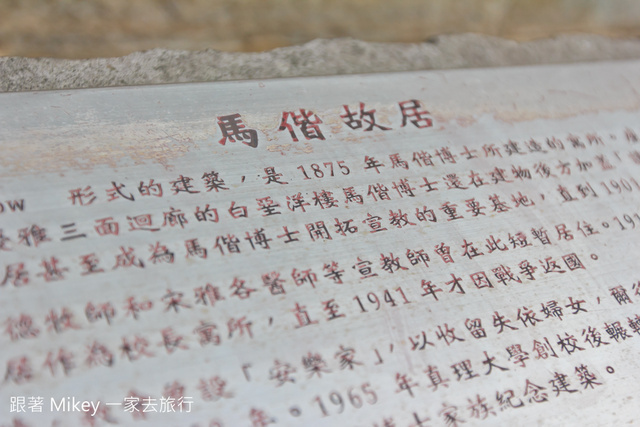 馬偕故居
ow 形式的建築，是 1875 年馬偕博士所建造的寓所。
雅三面迴廊的白堊洋樓馬偕博士還在建物後方加蓋
居甚至成為馬偕博士開拓宣教的重要基地，直到 190
德牧師和宋雅各醫師等宣教師曾在此短暫居住。19
居作為校長寓所，直至 1941 年才因戰爭返國。
設「安樂家」，以收留失依婦女，爾後
年。1965 年真理大學創校後輾轉
士家族紀念建築。
跟著 Mikey 一家去旅行